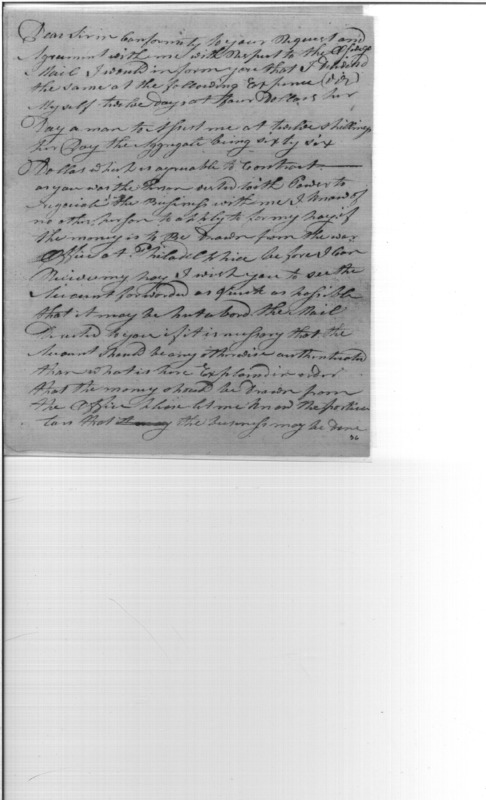 Dear Sir in Conformity to your Request and
Agreement with me with Respect to the
Mail I would inform you that I
the same at the following Expence (viz)
My self twelve days at four Dollars per
Day a man to assist me at twelve shillings
per Day the Aggregate being sixty six
Dollars which is agreeable to Contract
as you was the Person with Power to
Negociate the Business with me I know of
no other Person to apply to for my pay if
the money is to Be Drawn from the war
Office at Philadelphia before I can
Receive my pay I wish you to see the
Account forwarded as Quick as possible
that it may be put a bord the Mail
Directed to you if it is nessary that the
Account should be any otherwise authenticated
than what is here Explained in order
that the money should be Drawn from
the Office please let me know the perticu
lars that the business may be done